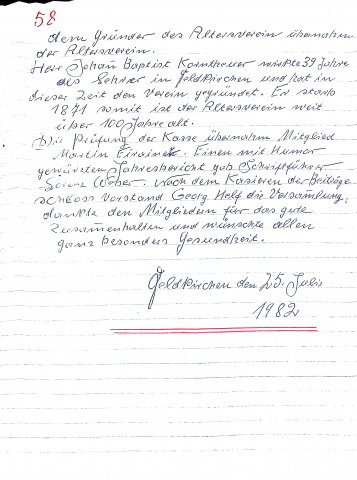 58
dem Gründer des Altersverein übernahm
der Altersverein.
Herr Johan Baptist Korntheuer wirkte 39 Jahre
als Lehrer in Feldkirchen und hat in
dieser Zeit den Verein gegründet. Er starb
1871 somit ist der Altersverein weit
über 100 Jahre alt.
Die Prüfung der Kasse übernahm Mitglied
Martin Einen mit Humor
gewürzten Jahresbericht gab Schriftführer
Weber. Nach dem Kasieren der Beiträge
schloss Vorstand Georg Helf die Versamlung,
dankte den Mitgliedern für das gute
Zusammenhalten und wünschte allen
ganz besonders Gesundheit.
Feldkirchen den 25. Juli
1982